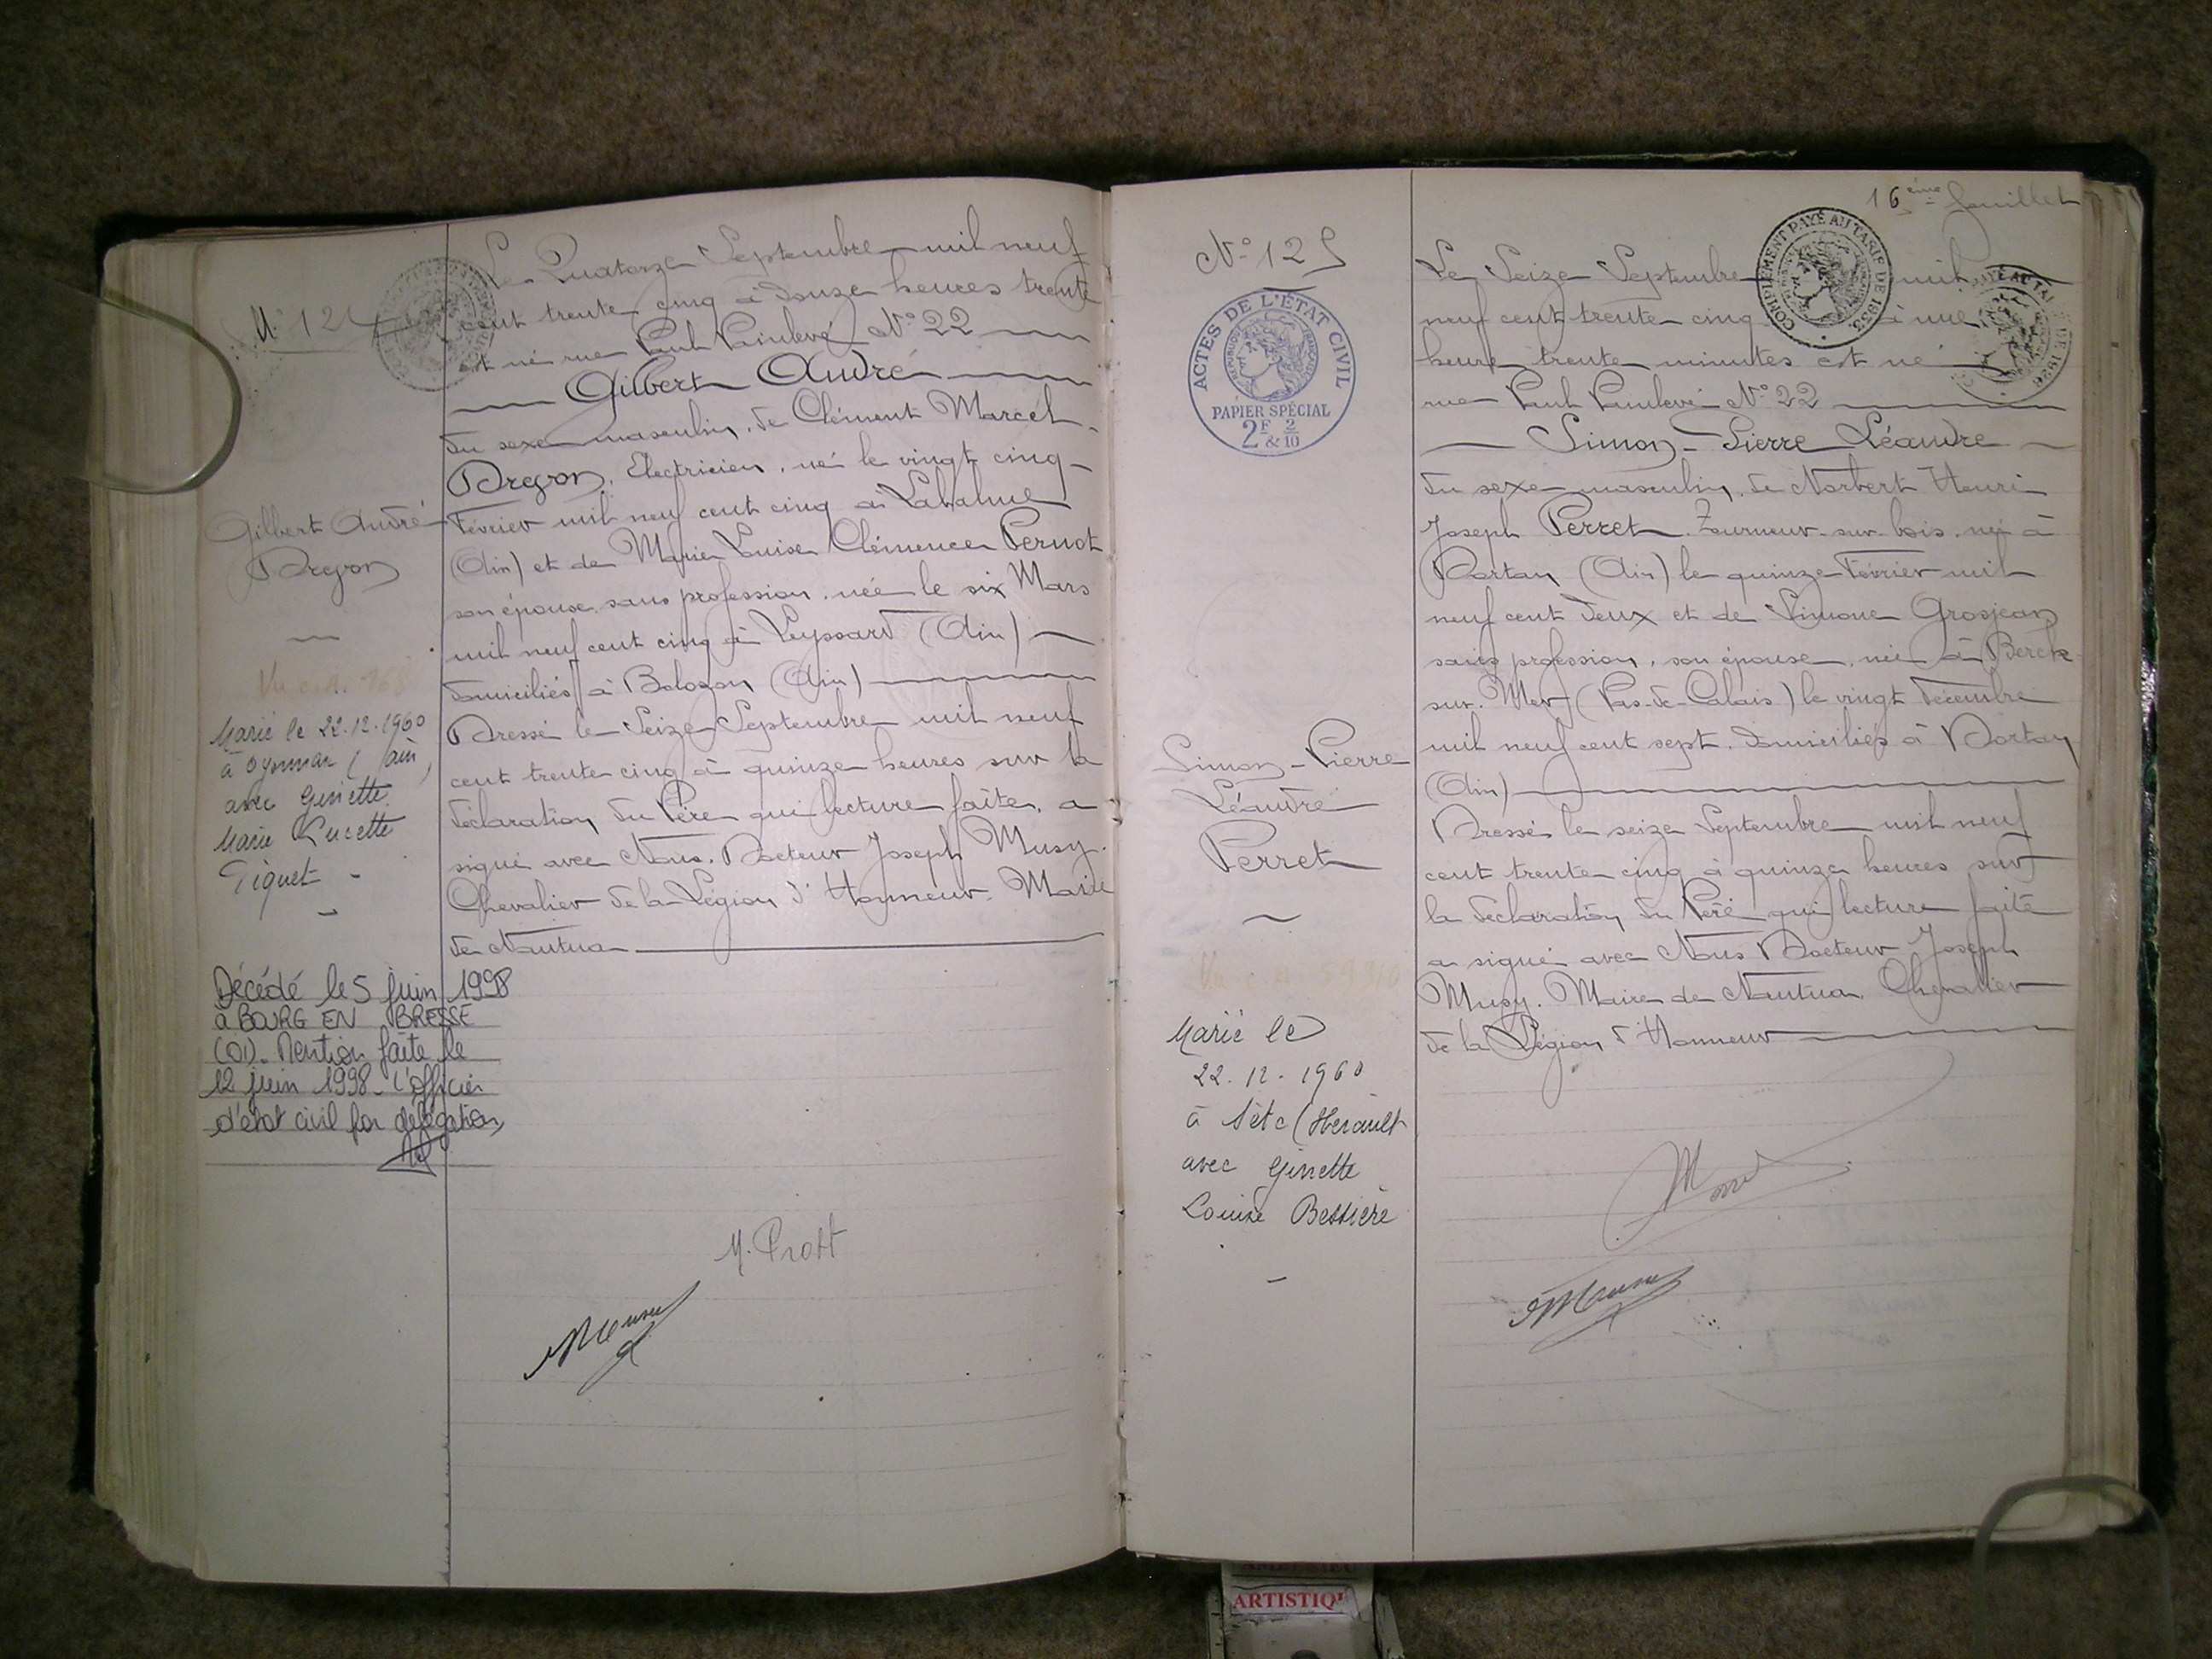 N° 124
Gilbert André
Dregon
Marié le 22.12.1960
à Oyonnax (Ain)
avec Ginette
Marie Lucette
Piquet -
Décédé le 5 juin 1998
à BOURG EN BRESSE
(01). Mention faite le
12 juin 1998 - L'officier
d'état civil par délégation,
Le Quatorze Septembre mil neuf
cent trente cinq à douze heures trente
est né rue Paul Painlevé N° 22
Gilbert André
du sexe masculin, de Clément Marcel
Dregon, Electricien, né le vingt cinq
Février mil neuf cent cinq à Labalme
(Ain) et de Marie Louise Clémence Pernot
son épouse, sans profession, née le six Mars
mil neuf cent cinq à Leyssard (Ain)
domiciliés à Bolozon (Ain)
Dressé le Seize Septembre mil neuf
cent trente cinq à quinze heures sur la
déclaration du Père qui lecture faite, a
signé avec Nous, Docteur Joseph Musy.
Chevalier de la Légion d'Honneur. Maire
de Nantua
N° 125
ACTES DE L'ÉTAT CIVIL
PAPIER SPÉCIAL
2F & 2/10
Simon-Pierre
Léandre
Perret
Marié le
22.12.1960
à Sète (Hérault
avec Ginette
Louise Bessière
16ème feuillet
COMPLÉMENT PAYÉ AU TARIF DE 1933.
Le Seize Septembre mil
neuf cent trente-cinq à une
heure trente minutes est né
rue Paul Painlevé N° 22
Simon-Pierre Léandre
du sexe masculin, de Norbert Henri
Joseph Perret. Tourneur-sur-bois, né à
Dortan (Ain) le quinze Février mil
neuf cent deux et de Simone Grosjean
sans profession, son épouse, née à Berck
sur-Mer (Pas-de-Calais) le vingt décembre
mil neuf cent sept, domiciliés à Dortan
(Ain)
Dressé le seize Septembre mil neuf
cent trente cinq à quinze heures sur
la déclaration du Père qui lecture faite
a signé avec Nous Docteur Joseph
Musy. Maire de Nantua Chevalier
de la Légion d'Honneur
ARTISTIQ